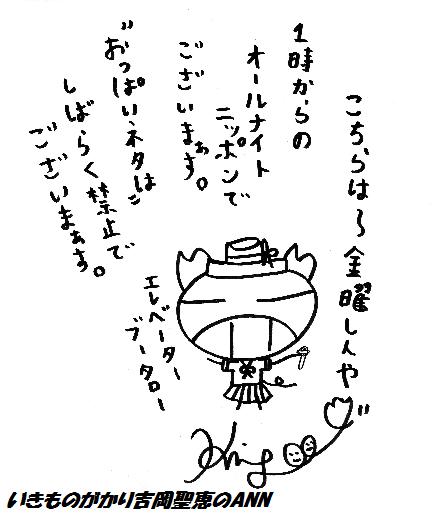 こちらは〜金曜しんや
1時からの
オールナイト
ニッポンで
ございまぁす。
"おっぱいネタは"
しばらく禁止で
ございまぁす。
エレベーター
ブータロー
いきものがかり吉岡聖恵のANN